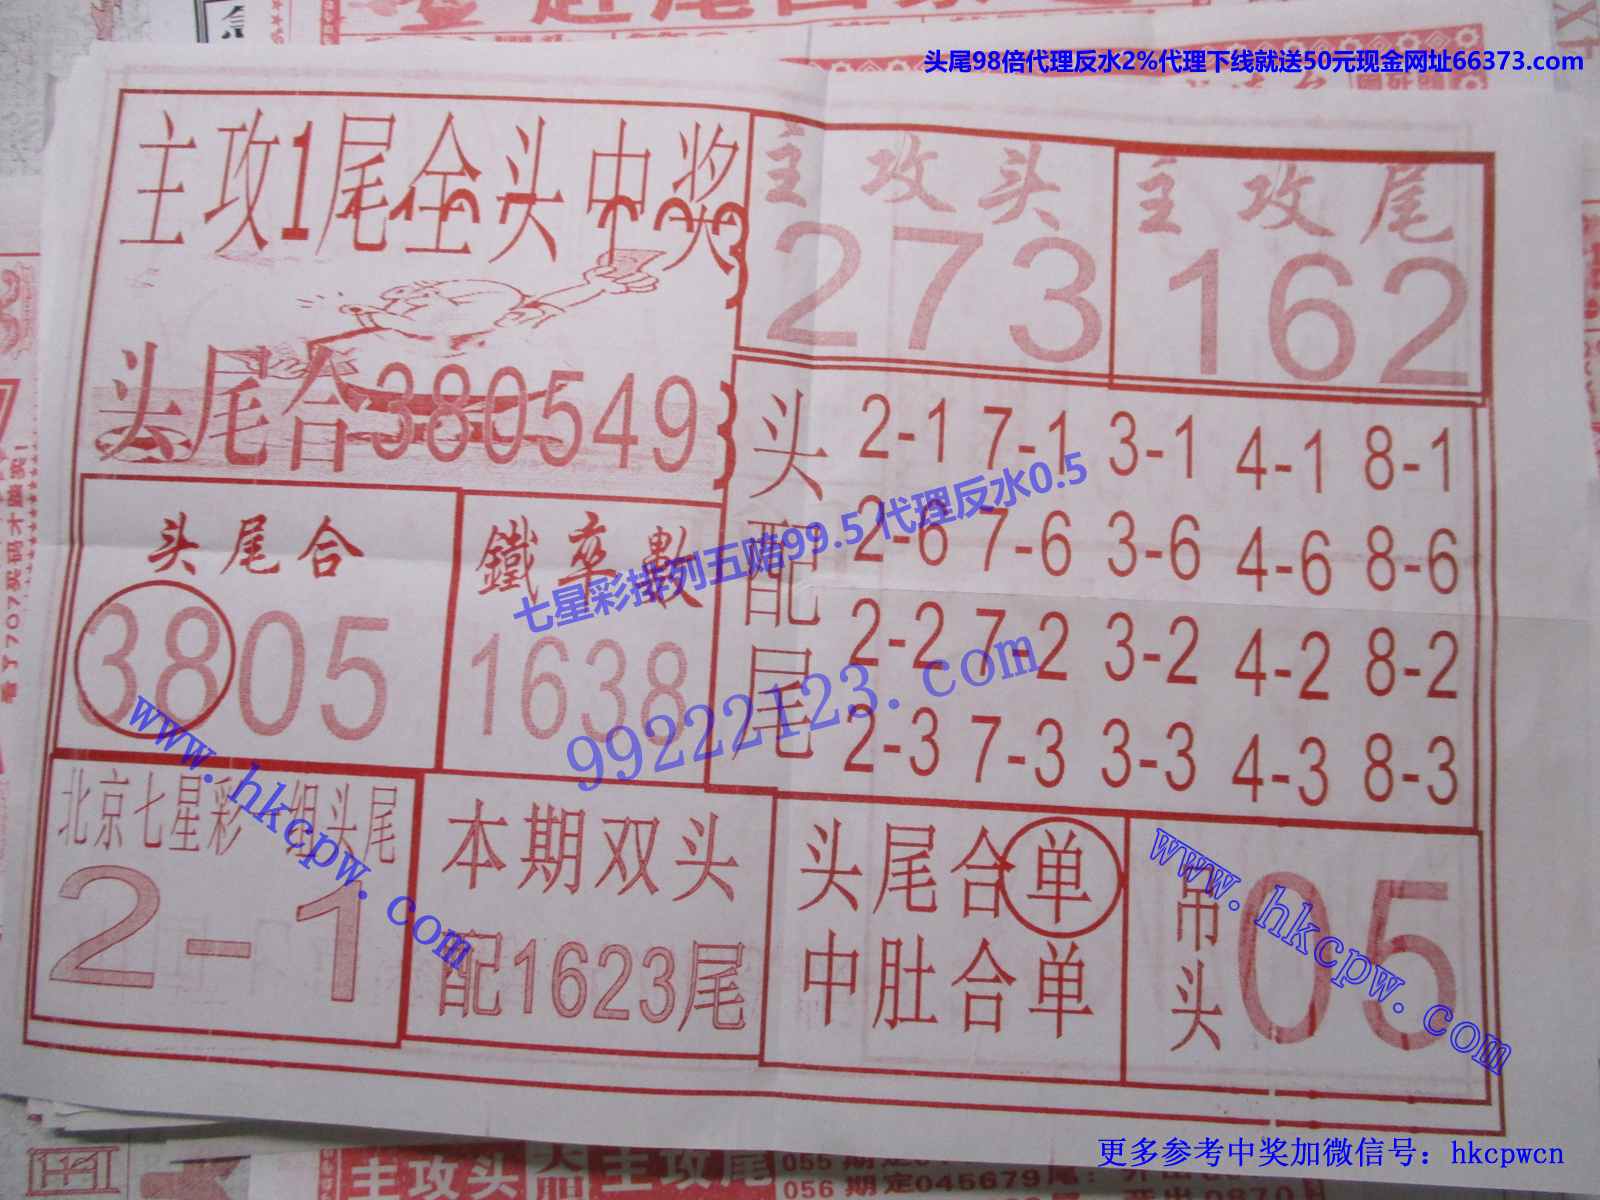 头尾98倍代理反水2%代理下线就送50元现金网址66373.com
主攻1尾全头中奖
头尾合380549
主攻头
273
主攻尾
162
头配尾
2-1 7-1 3-1 4-1 8-1
2-6 7-6 3-6 4-6 8-6
2-2 7-2 3-2 4-2 8-2
2-3 7-3 3-3 4-3 8-3
头尾合
3805
鐵卒數
1638
七星彩排列五赔99.5代理反水0.5
99222123.com
www.hkcpw.com
北京七星彩一组头尾
2-1
本期双头
配1623尾
头尾合单
中肚合单
吊头
05
www.hkcpw.com
更多参考中奖加微信号：hkcpwcn
主攻头
主攻尾